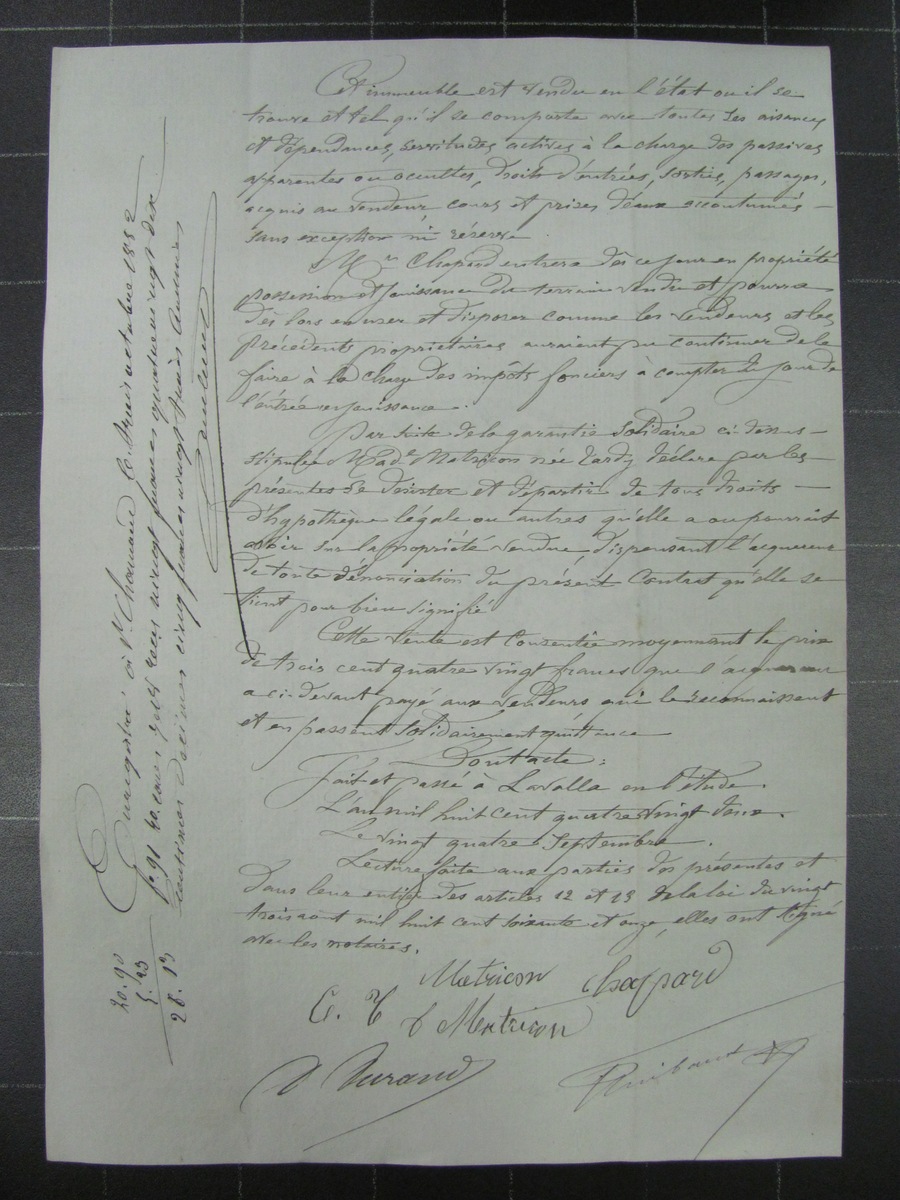 Cet immeuble est vendu en l'état ou il se
trouve et tel qu'il se comporte avec toutes ses aisances
et dépendances, servitudes actives à la charge des passives
apparentes ou occultes, droits d'entrées, sorties, passages,
acquis au vendeur cours et prises d'eaux accoutumés —
sans exception ni réserve.
Mr. Chapard entrera dès ce jour en propriété
possession et jouissance du terrain vendu et pourra
dès lors en user et disposer comme les vendeurs et les
précédents propriétaires auraient pu continuer de le
faire à la charge des impôts fonciers à compter du jour de
l'entrée en jouissance.
Par suite de la garantie solidaire ci-dessus —
stipulée Made Matricon née Tardy déclare par les
présentes se désister et départir de tous droits —
d'hypothèque légale ou autres qu'elle a ou pourrait
avoir sur la propriété vendue, dispensant l'acquereur
de toute dénonciation du présent contrat qu'elle se
tient pour bien signifié
Cette vente est consentie moyennant le prix
de trois cent quatre vingt francs que l'acquereur
a ci-devant payé aux vendeurs qui le reconnaissent
et en passent solidairement quittance
Dont acte :
Fait et passé à Lavalla en l'étude.
L'an mil huit cent quatre vingt deux.
Le vingt quatre Septembre.
Lecture faite aux parties des présentes et
dans leur entier des articles 12 et 13 de la loi du vingt
trois aout mil huit cent soixante et onze, elles ont signé
avec les notaires.
Matricon Chappard
C. T f Matricon
D Durand
Enregistré à St Chamond le trois octobre 1882
fo 91 Reçu vingt francs quatre vingt dix
centimes décimes cinq francs vingt trois centimes
20.90
5.23
26.13